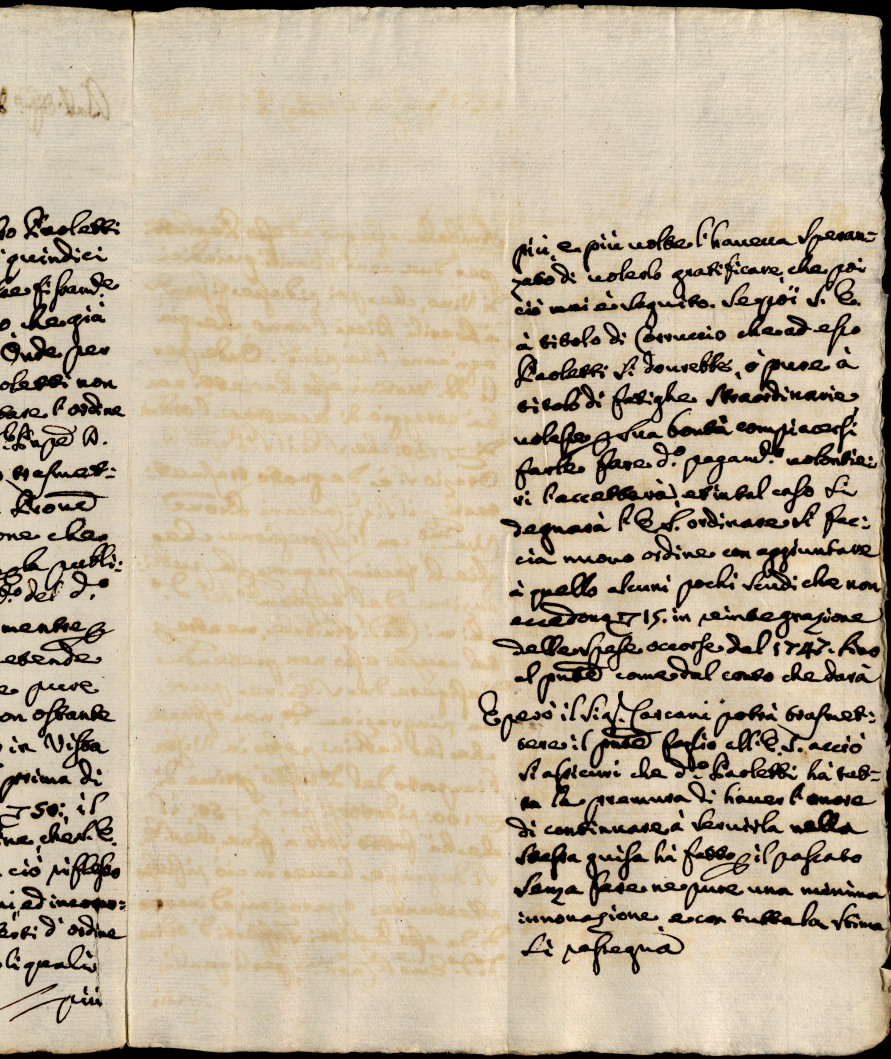 so Paoletti
quindici
si prende
o, che già
Onde per
oletti non
tare l'ordine
trasmet:
Prone
one che
la publi:
d.º del d.º
mentre
etende
e pure
on ostante
in Vista
prima di
50; il
ne, che V. E.
ciò riflesso
ni, ed incomo:
erti d'ordine
li quali
più
più, e più volte l'haveva speran=
zato di volerlo gratificare, che poi
ciò mai è seguito. Se poi V. E.
à titolo di Corruccio che ad esso
Paoletti si dourebbe, ò pure à
titolo di fatighe straordinarie
volesse per sua bontà compiacersi
farle fare d.º pagam.º volontie:
ri l'accetterà, et in tal caso si
degnarà l'E. V. ordinare si fac:
cia nuovo ordine con aggiuntare
à quello alcuni pochi scudi che non
eccedono 15. in reintegrazione
delle spese occorse dal 1747. sino
al pnte come dal conto che darà
E però il Sig. Carcani potrà trasmet:
tere il pnte foglio all'E. V. acciò
si assicuri che d.º Paoletti hà tut=
ta la premura di haver l'onore
di continuare à servirla nella
stessa guisa hà fatto per il passato
senza fare ne pure una minima
innovazione e con tutta la stima
si rassegna